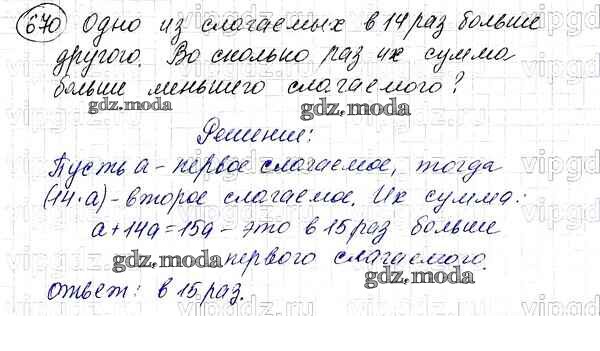 670 Одно из слагаемых в 14 раз больше
другого. Во сколько раз их сумма
больше меньшего слагаемого?
gdz.moda gdz.moda
Решение:
Пусть а - первое слагаемое, тогда
(14·а) - второе слагаемое. Их сумма:
а+14а=15а - это в 15 раз больше
первого слагаемого.
gdz.moda gdz.moda
Ответ: в 15 раз.
vipgdz.ru